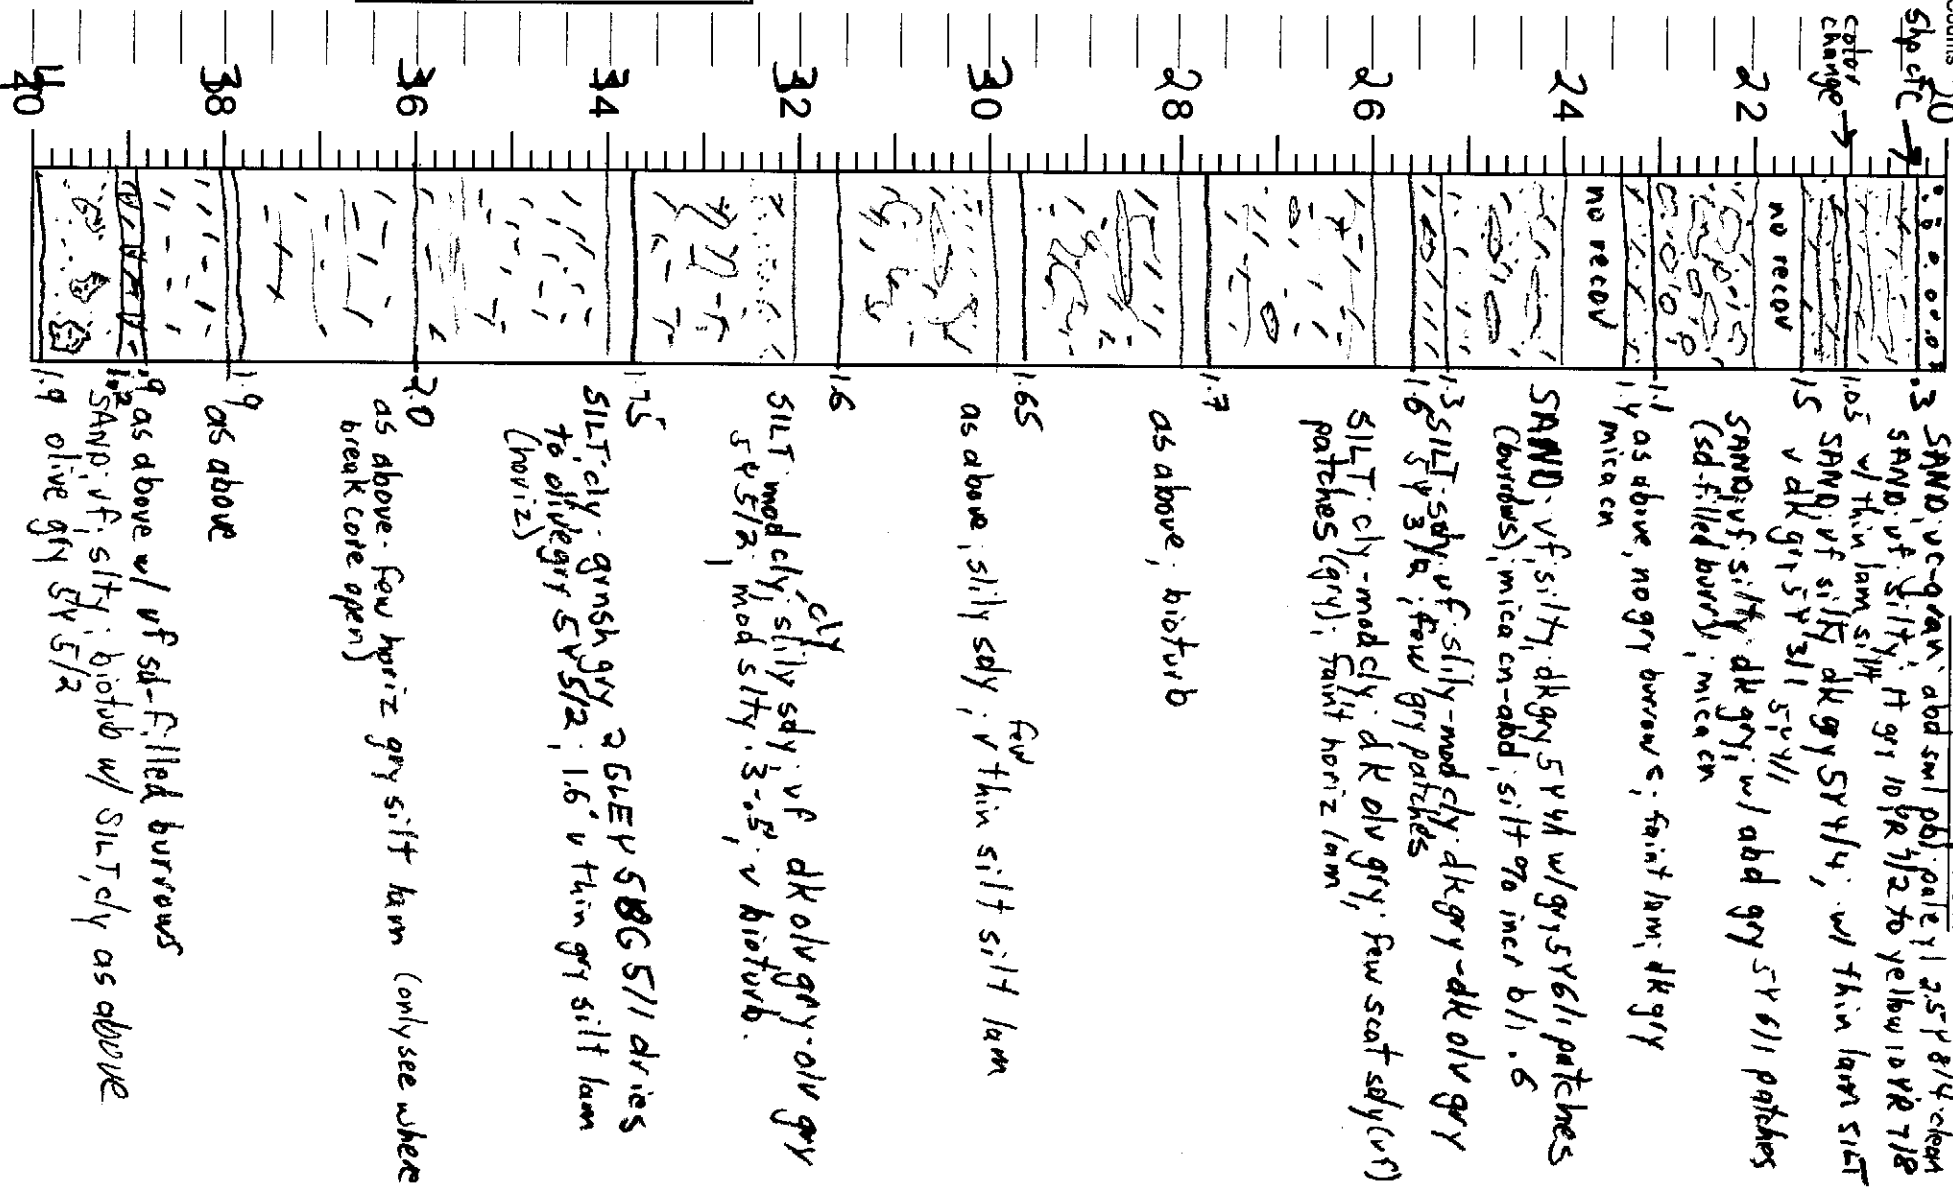 20
Shp ctc →
color
change →
22
24
26
28
30
32
34
36
38
40
no recov
no recov
.3 SAND, vc-gran; abd sml pbl; pale yl 2.5Y 8/4 clean
SAND, vf, silty; lt gry 10YR 7/2 to yellow 10YR 7/8
1.05 w/ thin lam silt
SAND, vf silty dk gry 5Y 4/4, w/ thin lam SILT
1.5 v dk gry 5Y 3/1
5Y 4/1
SAND, vf, silty, dk gry, w/ abd gry 5Y 6/1 patches
(sd-filled burrs); mica cn
1.1
as above, no gry burrows; faint lam; dk gry
1.4 mica cn
SAND, vf, silty, dk gry 5Y 4/1 w/ gry 5Y 6/1 patches
(burrows), mica cn-abd, silt % incr b/l .6
1.3 SILT, sdy, vf, slily-mod cly, dk gry-dk olv gry
1.6 5Y 3/2; few gry patches
SILT, cly-mod cly; dk olv gry; few scat sdy (vf)
patches (gry); faint horiz lam
1.7
as above, bioturb
1.65
as above, slily sdy; few v thin silt lam
1.6
SILT mod cly, slily sdy, vf dk olv gry-olv gry
5Y 5/2, mod slty .3-.5, v bioturb.
1.75
SILT, cly grnsh gry 2 GLEY 5BG 5/1 dries
to olive gry 5Y 5/2; 1.6' v thin gry silt lam
(horiz)
2.0
as above - few horiz gry silt lam (only see where
break core open)
1.9
as above
.9 as above w/ vf sd-filled burrows
1.2
SAND, vf, slty; bioturb w/ SILT, cly as above
1.9 olive gry 5Y 5/2